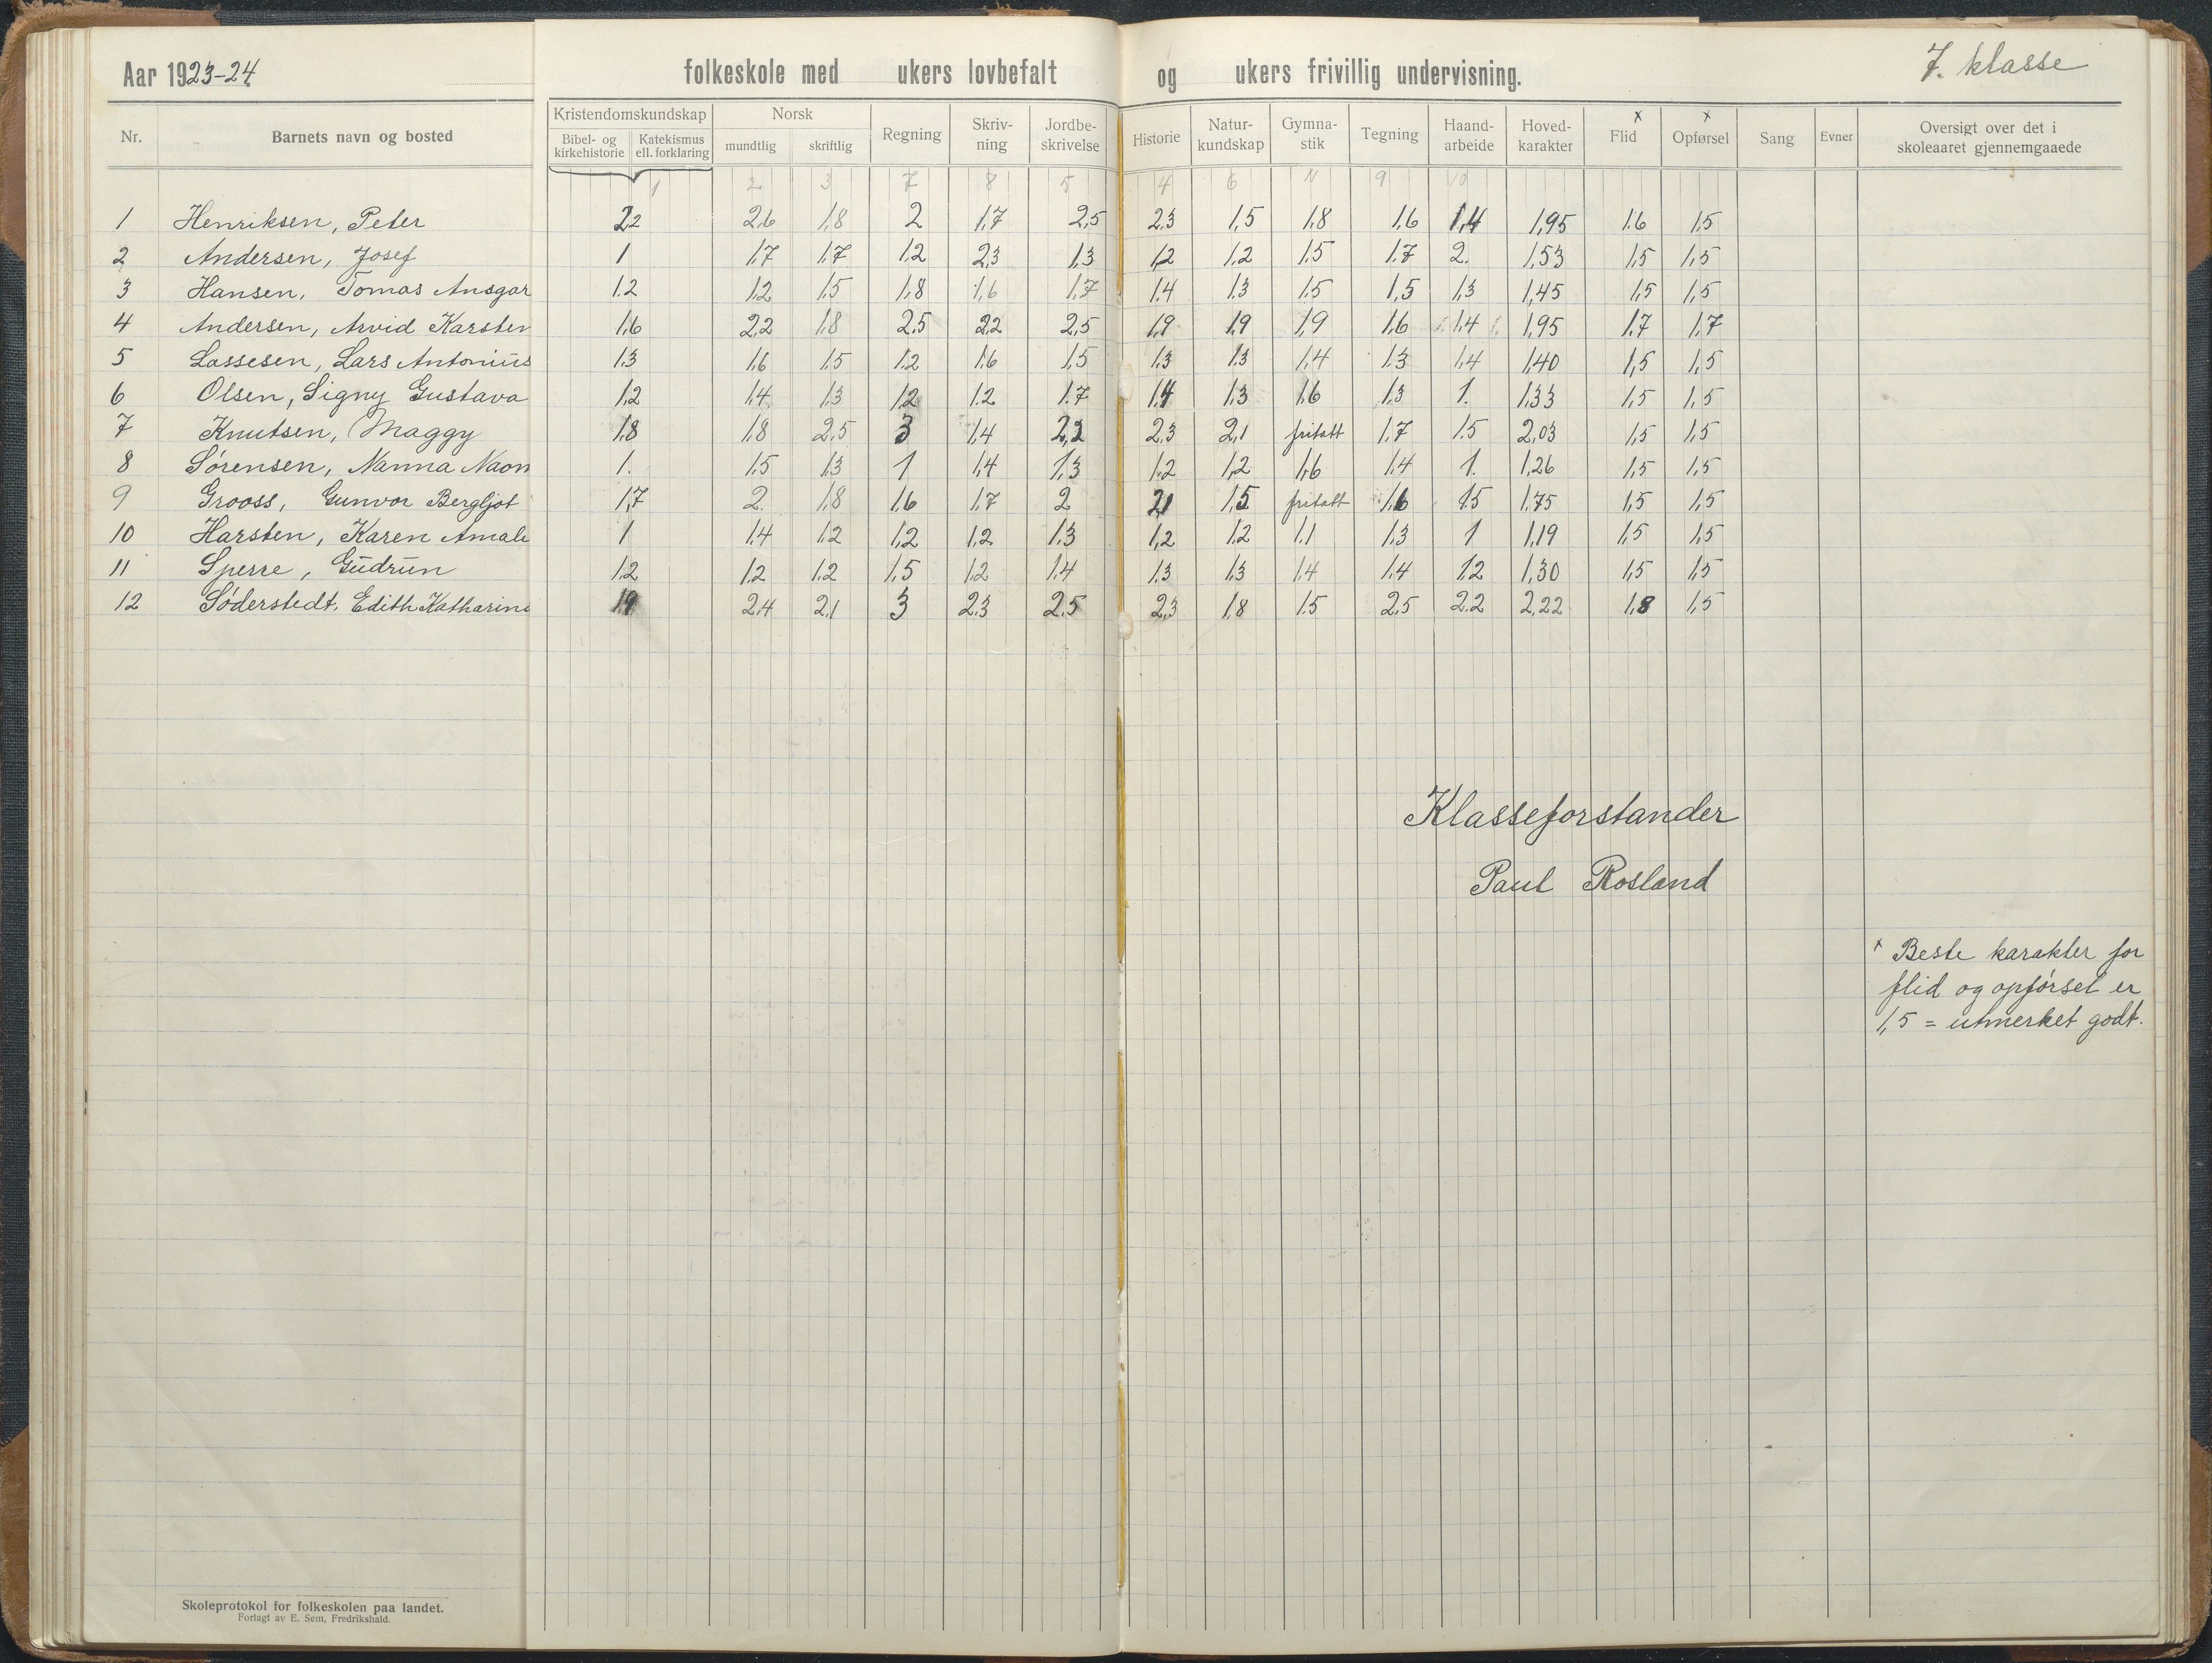 Aar 1923-24. folkeskole med ukers lovbefalt og ukers frivillig undervisning. 7. klasse
Nr. Barnets navn og bosted Kristendomskundskap Bibel- og kirkehistorie Katekismus ell. forklaring Norsk mundtlig skriftlig Regning Skriv-ning Jordbe-skrivelse Historie Natur-kundskap Gymna-stik Tegning Haand-arbeide Hoved-karakter Flid x Opførsel x Sang Evner Oversigt over det i skoleaaret gjennemgaaede
1 2 3 7 8 5 4 6 11 9 10
1 Henriksen, Peter 2,2 2,6 1,8 2 1,7 2,5 2,3 1,5 1,8 1,6 1,4 1,95 1,6 1,5
2 Andersen, Josef 1 1,7 1,7 1,2 2,3 1,3 1,2 1,2 1,5 1,7 2. 1,53 1,5 1,5
3 Hansen, Tomas Ansgar 1,2 1,2 1,5 1,8 1,6 1,7 1,4 1,3 1,5 1,5 1,3 1,45 1,5 1,5
4 Andersen, Arvid Karsten 1,6 2,2 1,8 2,5 2,2 2,5 1,9 1,9 1,9 1,6 1,4 1,95 1,7 1,7
5 Lassesen, Lars Antonius 1,3 1,6 1,5 1,2 1,6 1,5 1,3 1,3 1,4 1,3 1,4 1,40 1,5 1,5
6 Olsen, Signy Gustava 1,2 1,4 1,3 1,2 1,2 1,7 1,4 1,3 1,6 1,3 1. 1,33 1,5 1,5
7 Knutsen, Maggy 1,8 1,8 2,5 3 1,4 2,2 2,3 2,1 fritatt 1,7 1,5 2,03 1,5 1,5
8 Sørensen, Nanna Naom 1. 1,5 1,3 1 1,4 1,3 1,2 1,2 1,6 1,4 1. 1,26 1,5 1,5
9 Grooss, Gunvor Bergljot 1,7 2. 1,8 1,6 1,7 2 2,1 1,5 fritatt 1,6 1,5 1,75 1,5 1,5
10 Harsten, Karen Amali 1 1,4 1,2 1,2 1,2 1,3 1,2 1,2 1,1 1,3 1 1,19 1,5 1,5
11 Sperre, Gudrun 1,2 1,2 1,2 1,5 1,2 1,4 1,3 1,3 1,4 1,4 1,2 1,30 1,5 1,5
12 Søderstedt, Edith Katharine 1,9 2,4 2,1 3 2,3 2,5 2,3 1,8 1,5 2,5 2,2 2,22 1,8 1,5
Klasseforstander
Paul Rosland
x Beste karakter for
flid og opførsel er
1,5 = utmerket godt.
Skoleprotokol for folkeskolen paa landet.
Forlagt av E. Sem, Fredrikshald.